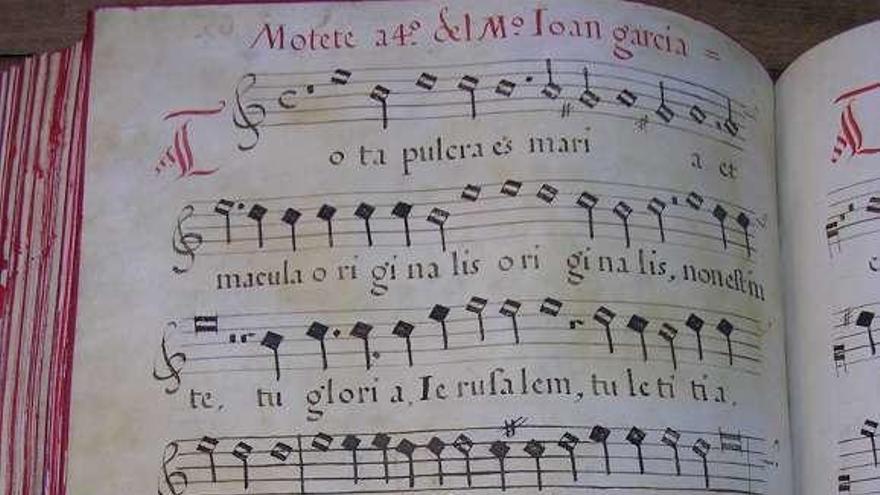 Motete a4º. del Mº. Ioan garcia =
T o ta pulcra es mari a et
macula o ri gi na lis o ri gi na lis, non est in
te, tu glori a, Ierusalem, tu le ti tia,